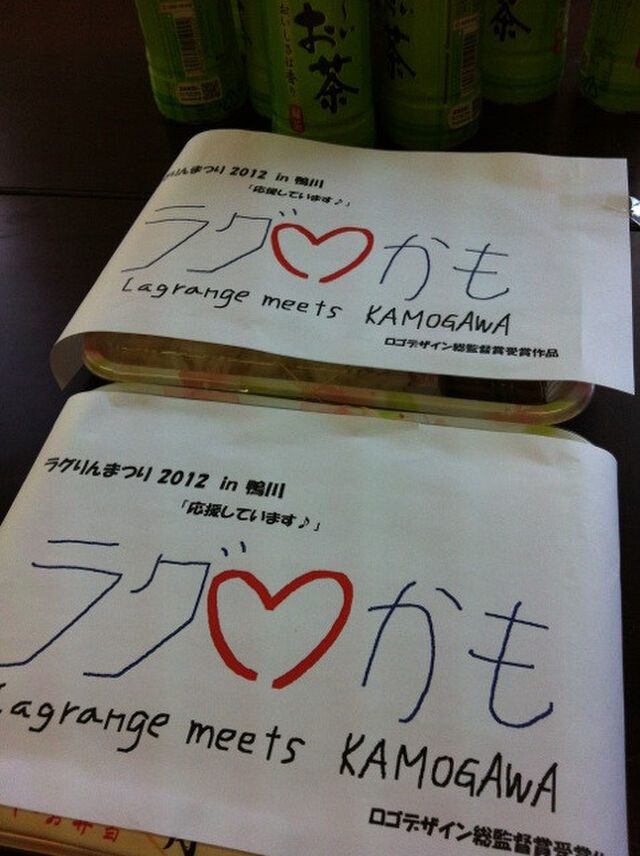 お茶
おいしさは香り
りんまつり 2012 in 鴨川
「応援しています♪」
ラグ かも
Lagrange meets KAMOGAWA
ロゴデザイン総監督賞受賞作品
ラグりんまつり 2012 in 鴨川
「応援しています♪」
ラグ かも
Lagrange meets KAMOGAWA
ロゴデザイン総監督賞受賞作
お弁当